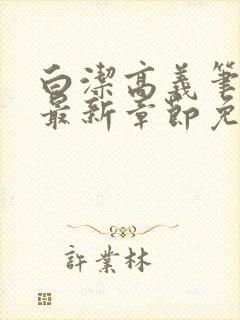 白潔高義筆
最新章節免
許業林